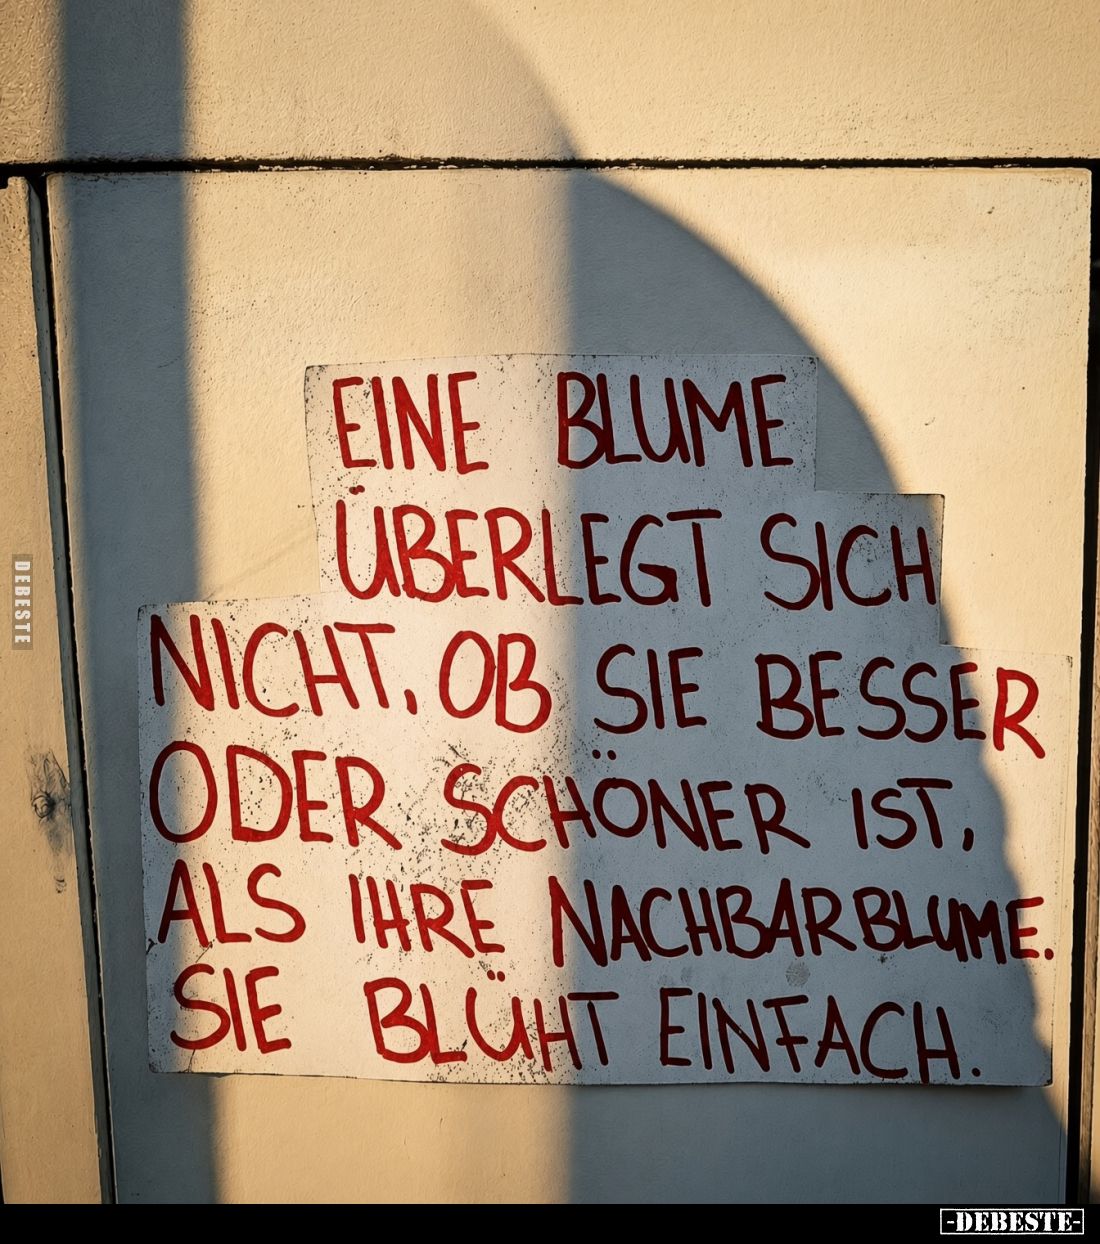 EINE BLUME
ÜBERLEGT SICH
NICHT, OB SIE BESSER
ODER SCHÖNER IST,
ALS IHRE NACHBARBLUME.
SIE BLÜHT EINFACH.
DEBESTE
-DEBESTE-